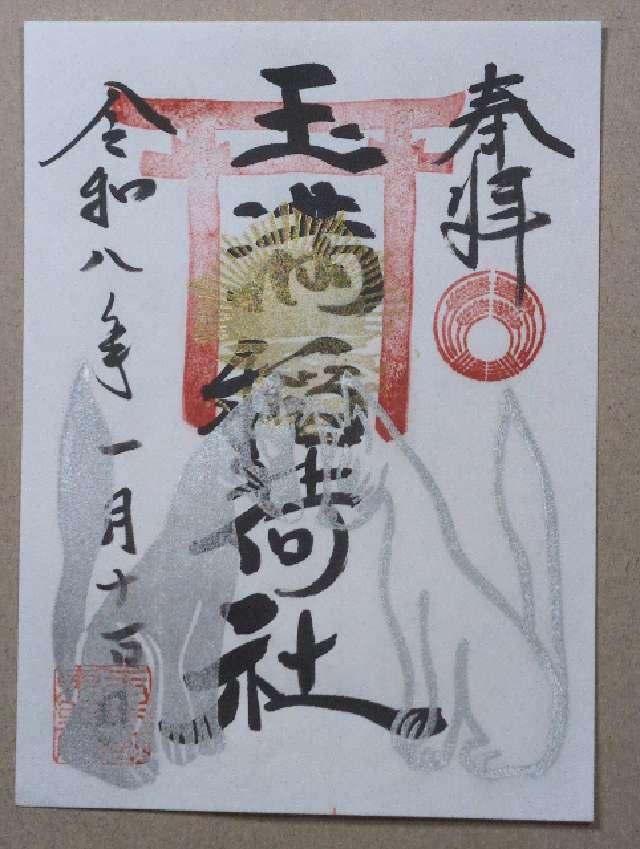 奉拝
玉満稲荷社
令和八年一月十一日